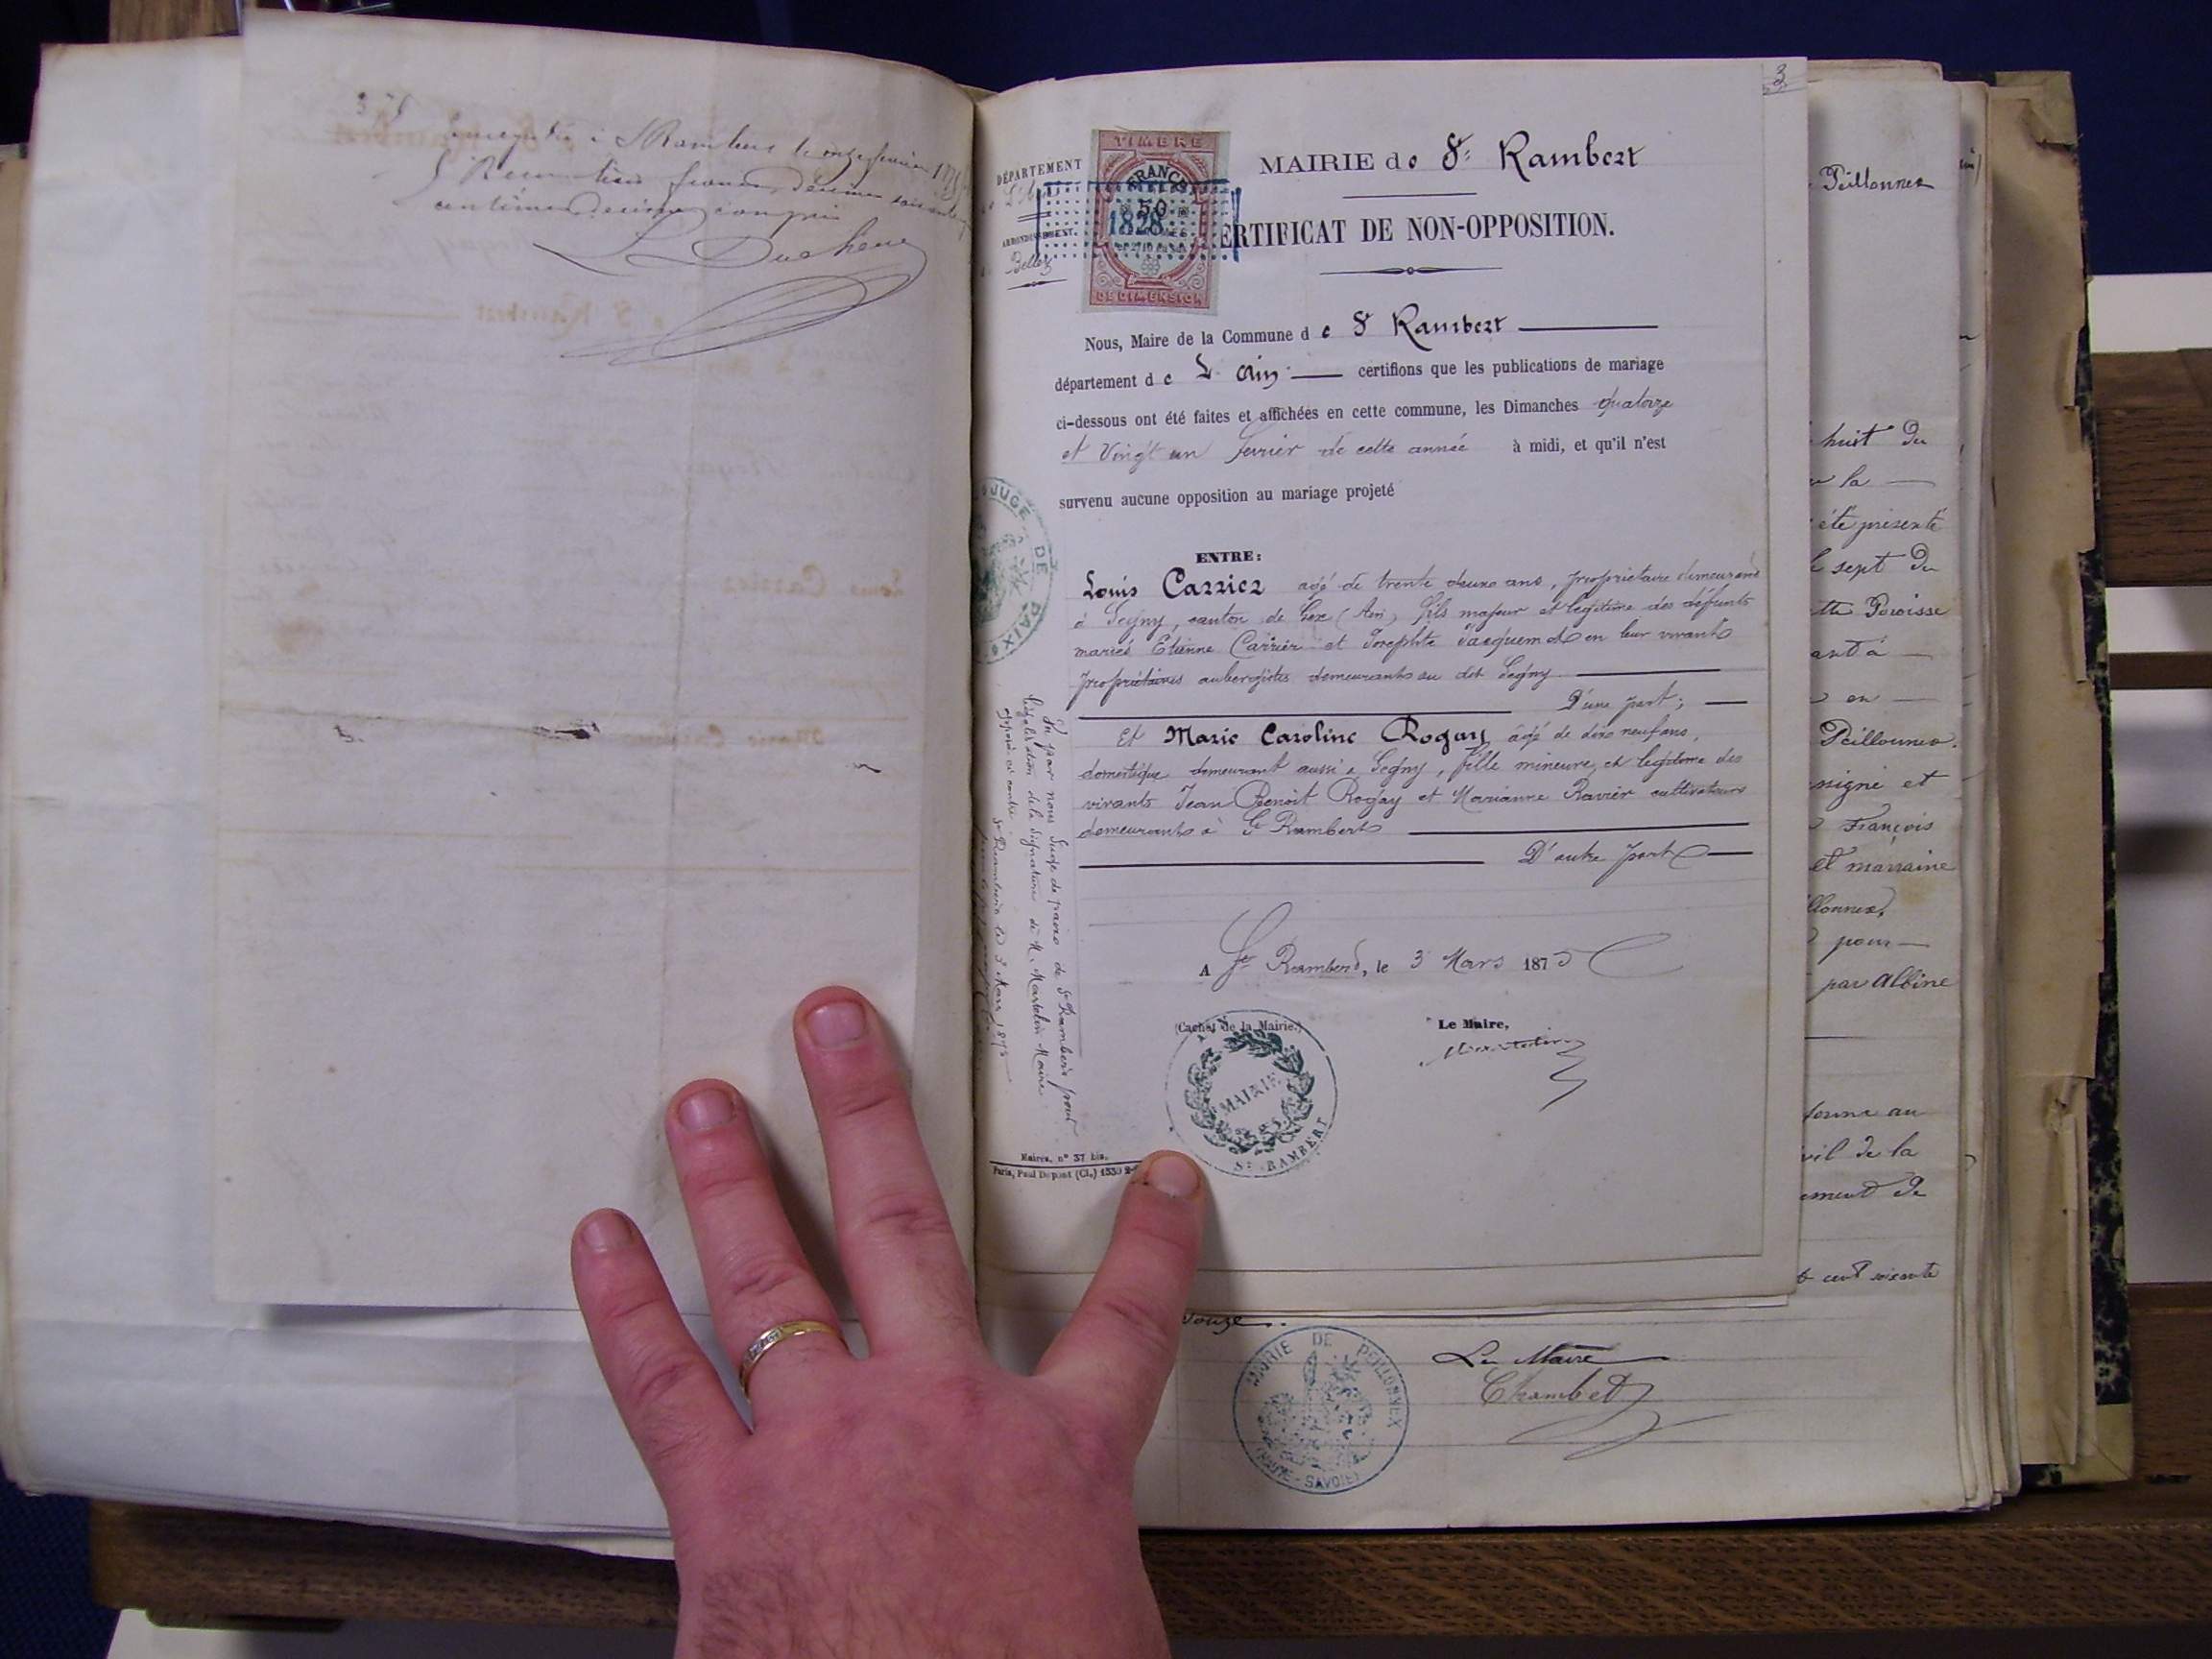 375
Enregistré à St Rambert le onze février 187
centimes décimes compris
L Duchene
3
DÉPARTEMENT
de L'Ain
ARRONDISSEMENT.
de Belley
TIMBRE
FRANCE
50
1828
DE DIMENSION
MAIRIE de St Rambert
CERTIFICAT DE NON-OPPOSITION.
Nous, Maire de la Commune de St Rambert
département de L'ain certifions que les publications de mariage
ci-dessous ont été faites et affichées en cette commune, les Dimanches quatorze
et Vingt un fevrier de cette année à midi, et qu'il n'est
survenu aucune opposition au mariage projeté
ENTRE:
Louis Carrier agé de trente deux ans, propriétaire demeurant
à Segny, canton de Gex (Ain) fils majeur et légitime des défunts
mariés Etienne Carrier et Josephte Jacquemet en leur vivant
propriétaires aubergistes demeurants au dit Segny
D'une part;
Et Marie Caroline Rogay agé de dix neuf ans,
domestique demeurant aussi à Segny, fille mineure et légitime des
vivants Jean Benoit Rogay et Marianne Ravier cultivateurs
demeurants à St Rambert
D'autre part
A St Rambert, le 3 Mars 1875
(Cachet de la Mairie.)
Le Maire,
MAIRIE
ST RAMBERT
JUGE DE PAIX
Vu par nous Juge de paix de St Rambert pour
légalisation de la signature de M. Martelin Maire
apposée ci contre
St Rambert le 3 Mars 1875
Maires, n° 37 bis.
Paris, Paul Dupont (Cl.) 1330
Peillonnex
huit du
la
été présenté
sept du
Paroisse
en
Peillonnex.
et
François
et marraine
pour
par Albine
au
de la
de
cent soixante
douze..
MAIRIE DE PEILLONNEX
(HAUTE-SAVOIE)
Le Maire
Chambet